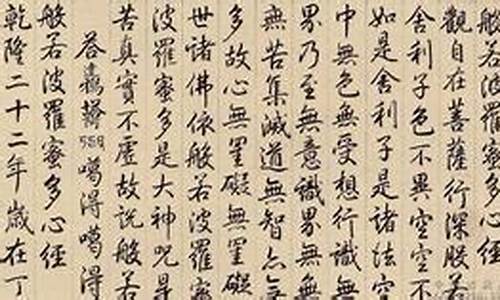 般若波羅蜜多心經
觀自在菩薩行深般若
舍利子色不異空空不
如是舍利子是諸法空
中無色無受想行識無
界乃至無意識界無無
無苦集滅道無智亦無
多故心無罣礙無罣礙
世諸佛依般若波羅蜜
波羅蜜多是大神咒是
苦真實不虛故說般若
答
噶得噶得
般若波羅蜜多心經
乾隆二十二年歲在丁